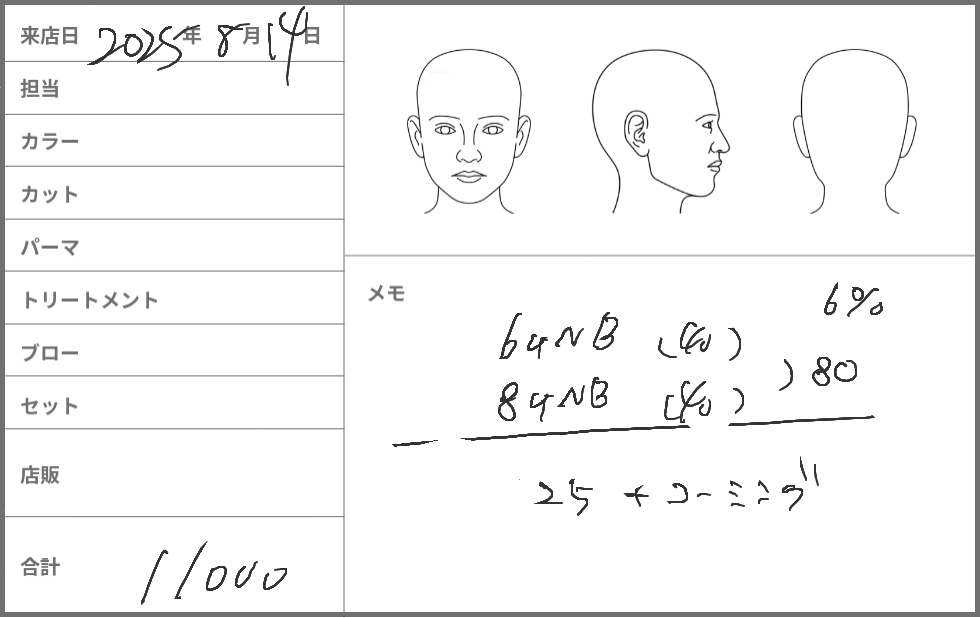 来店日 2025年 8月14日
担当
カラー
カット
パーマ
トリートメント
ブロー
セット
店販
合計 11000
メモ
6%
64NB (40)
84NB (40) ) 80
25 + コーミング